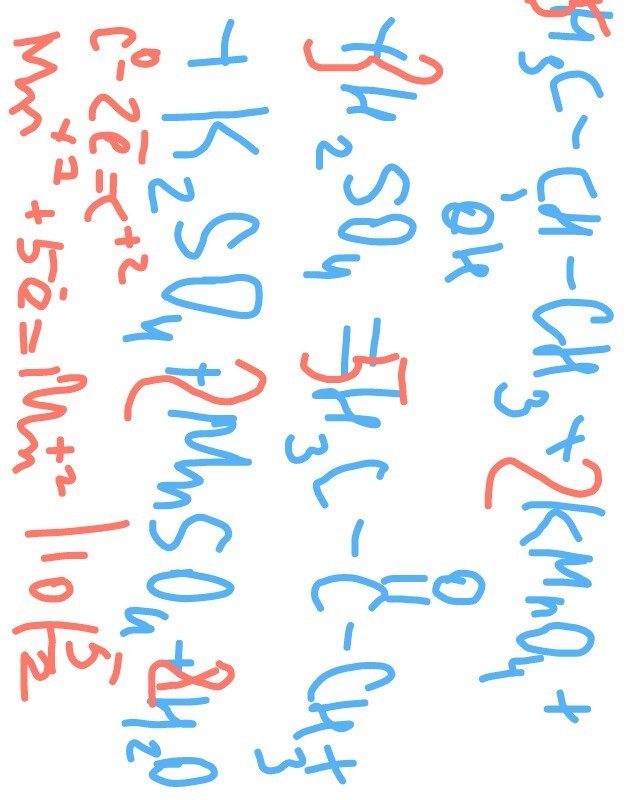 5H₃C-CH-CH₃+2KMnO₄+
OH
+3H₂SO₄=5H₃C-C-CH₃+
O
+K₂SO₄+2MnSO₄+8H₂O
C⁰-2ē=C⁺² |5
Mn⁺⁷+5ē=Mn⁺² |10|2